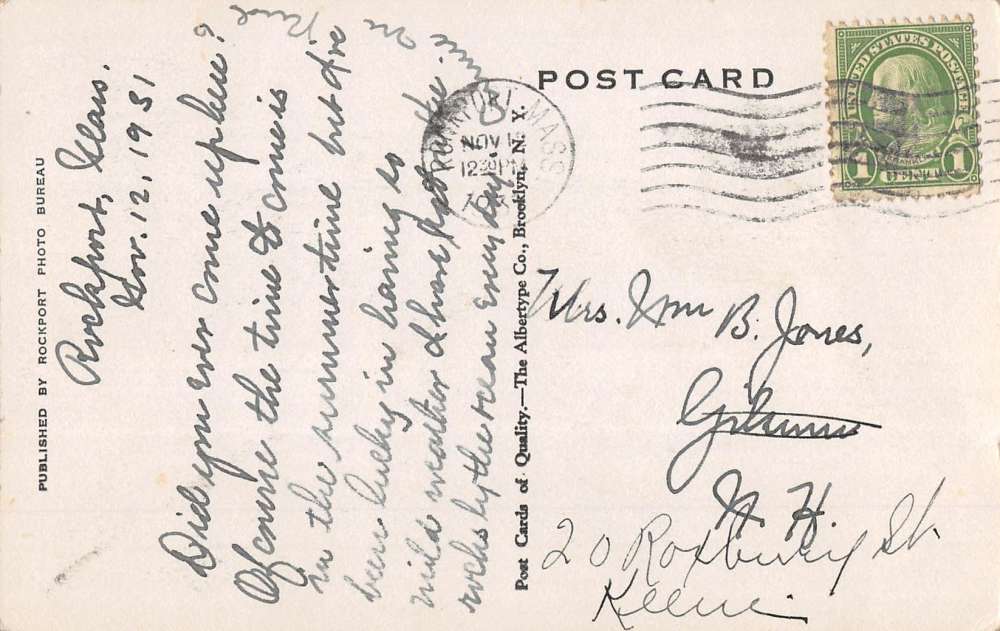 PUBLISHED BY ROCKPORT PHOTO BUREAU
Rockport, Mass.
Nov. 12, 1931
Did you ever come up here?
Of course the time to come is
in the summertime but I've
been lucky in having so
mild weather & have on the
rocks by the ocean every day.
Post Cards of Quality.—The Albertype Co., Brooklyn, N. Y.
POST CARD
ROCKPORT, MASS.
NOV
12 30 PM
UNITED STATES POSTAGE
1 1
Mrs. Wm B. Jones,
Gilsum
N. H.
20 Roxbury St.
Keene